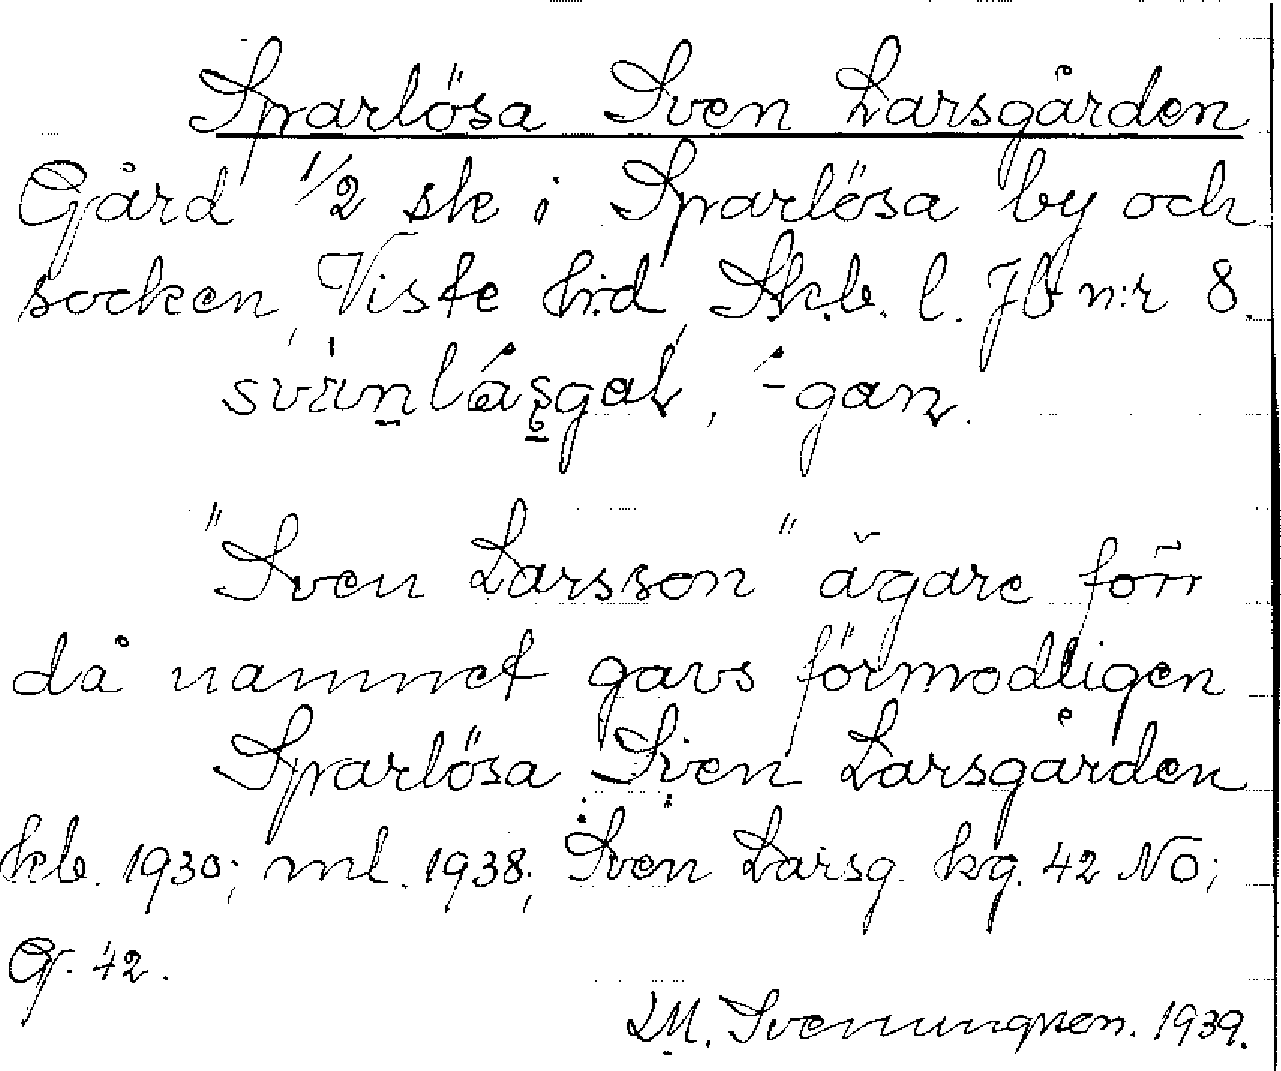 Sparlösa Sven Larsgården
Gård 1/2 sk i Sparlösa by och
socken, Viste hd, Skb. l. Jb n:r 8.
"Sven Larsson" ägare förr
då namnet gavs förmodligen
Sparlösa Sven Larsgården
kb. 1930; ml. 1938; Sven Larsg. kg. 42 NO;
G. 42.
LM. Svenungsson. 1939.